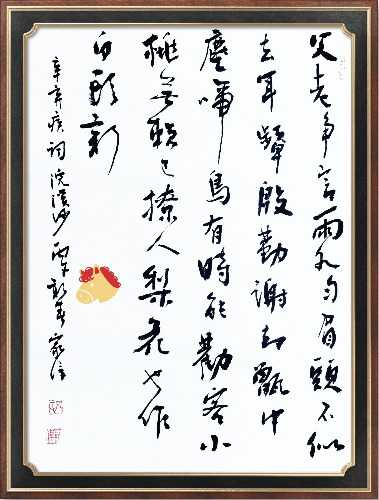 父老争言雨水匀眉頭不似
去年颦殷勤謝却甑中
塵啼鳥有時能勸客小
桃無赖已撩人梨花也作
白頭新
辛弃疾词浣溪沙 丙午新春